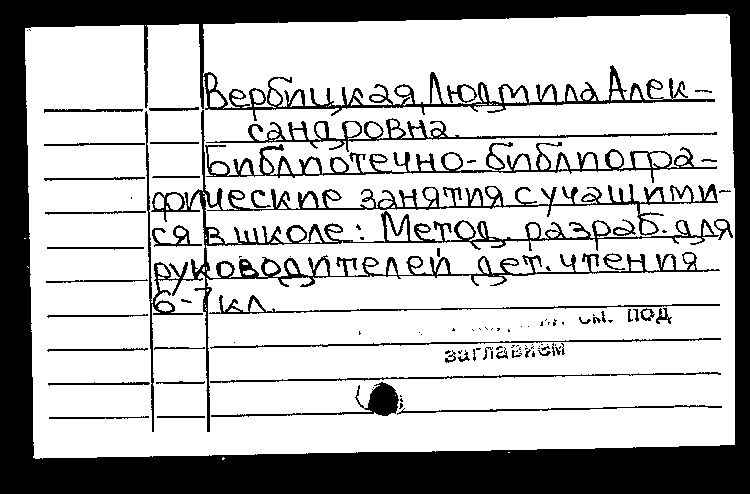 Вербицкая, Людмила Алек-
сандровна.
Библиотечно-библиогра-
фические занятия с учащими-
ся в школе: Метод. разраб. для
руководителей дет. чтения
6-7 кл.
см. под
заглавием